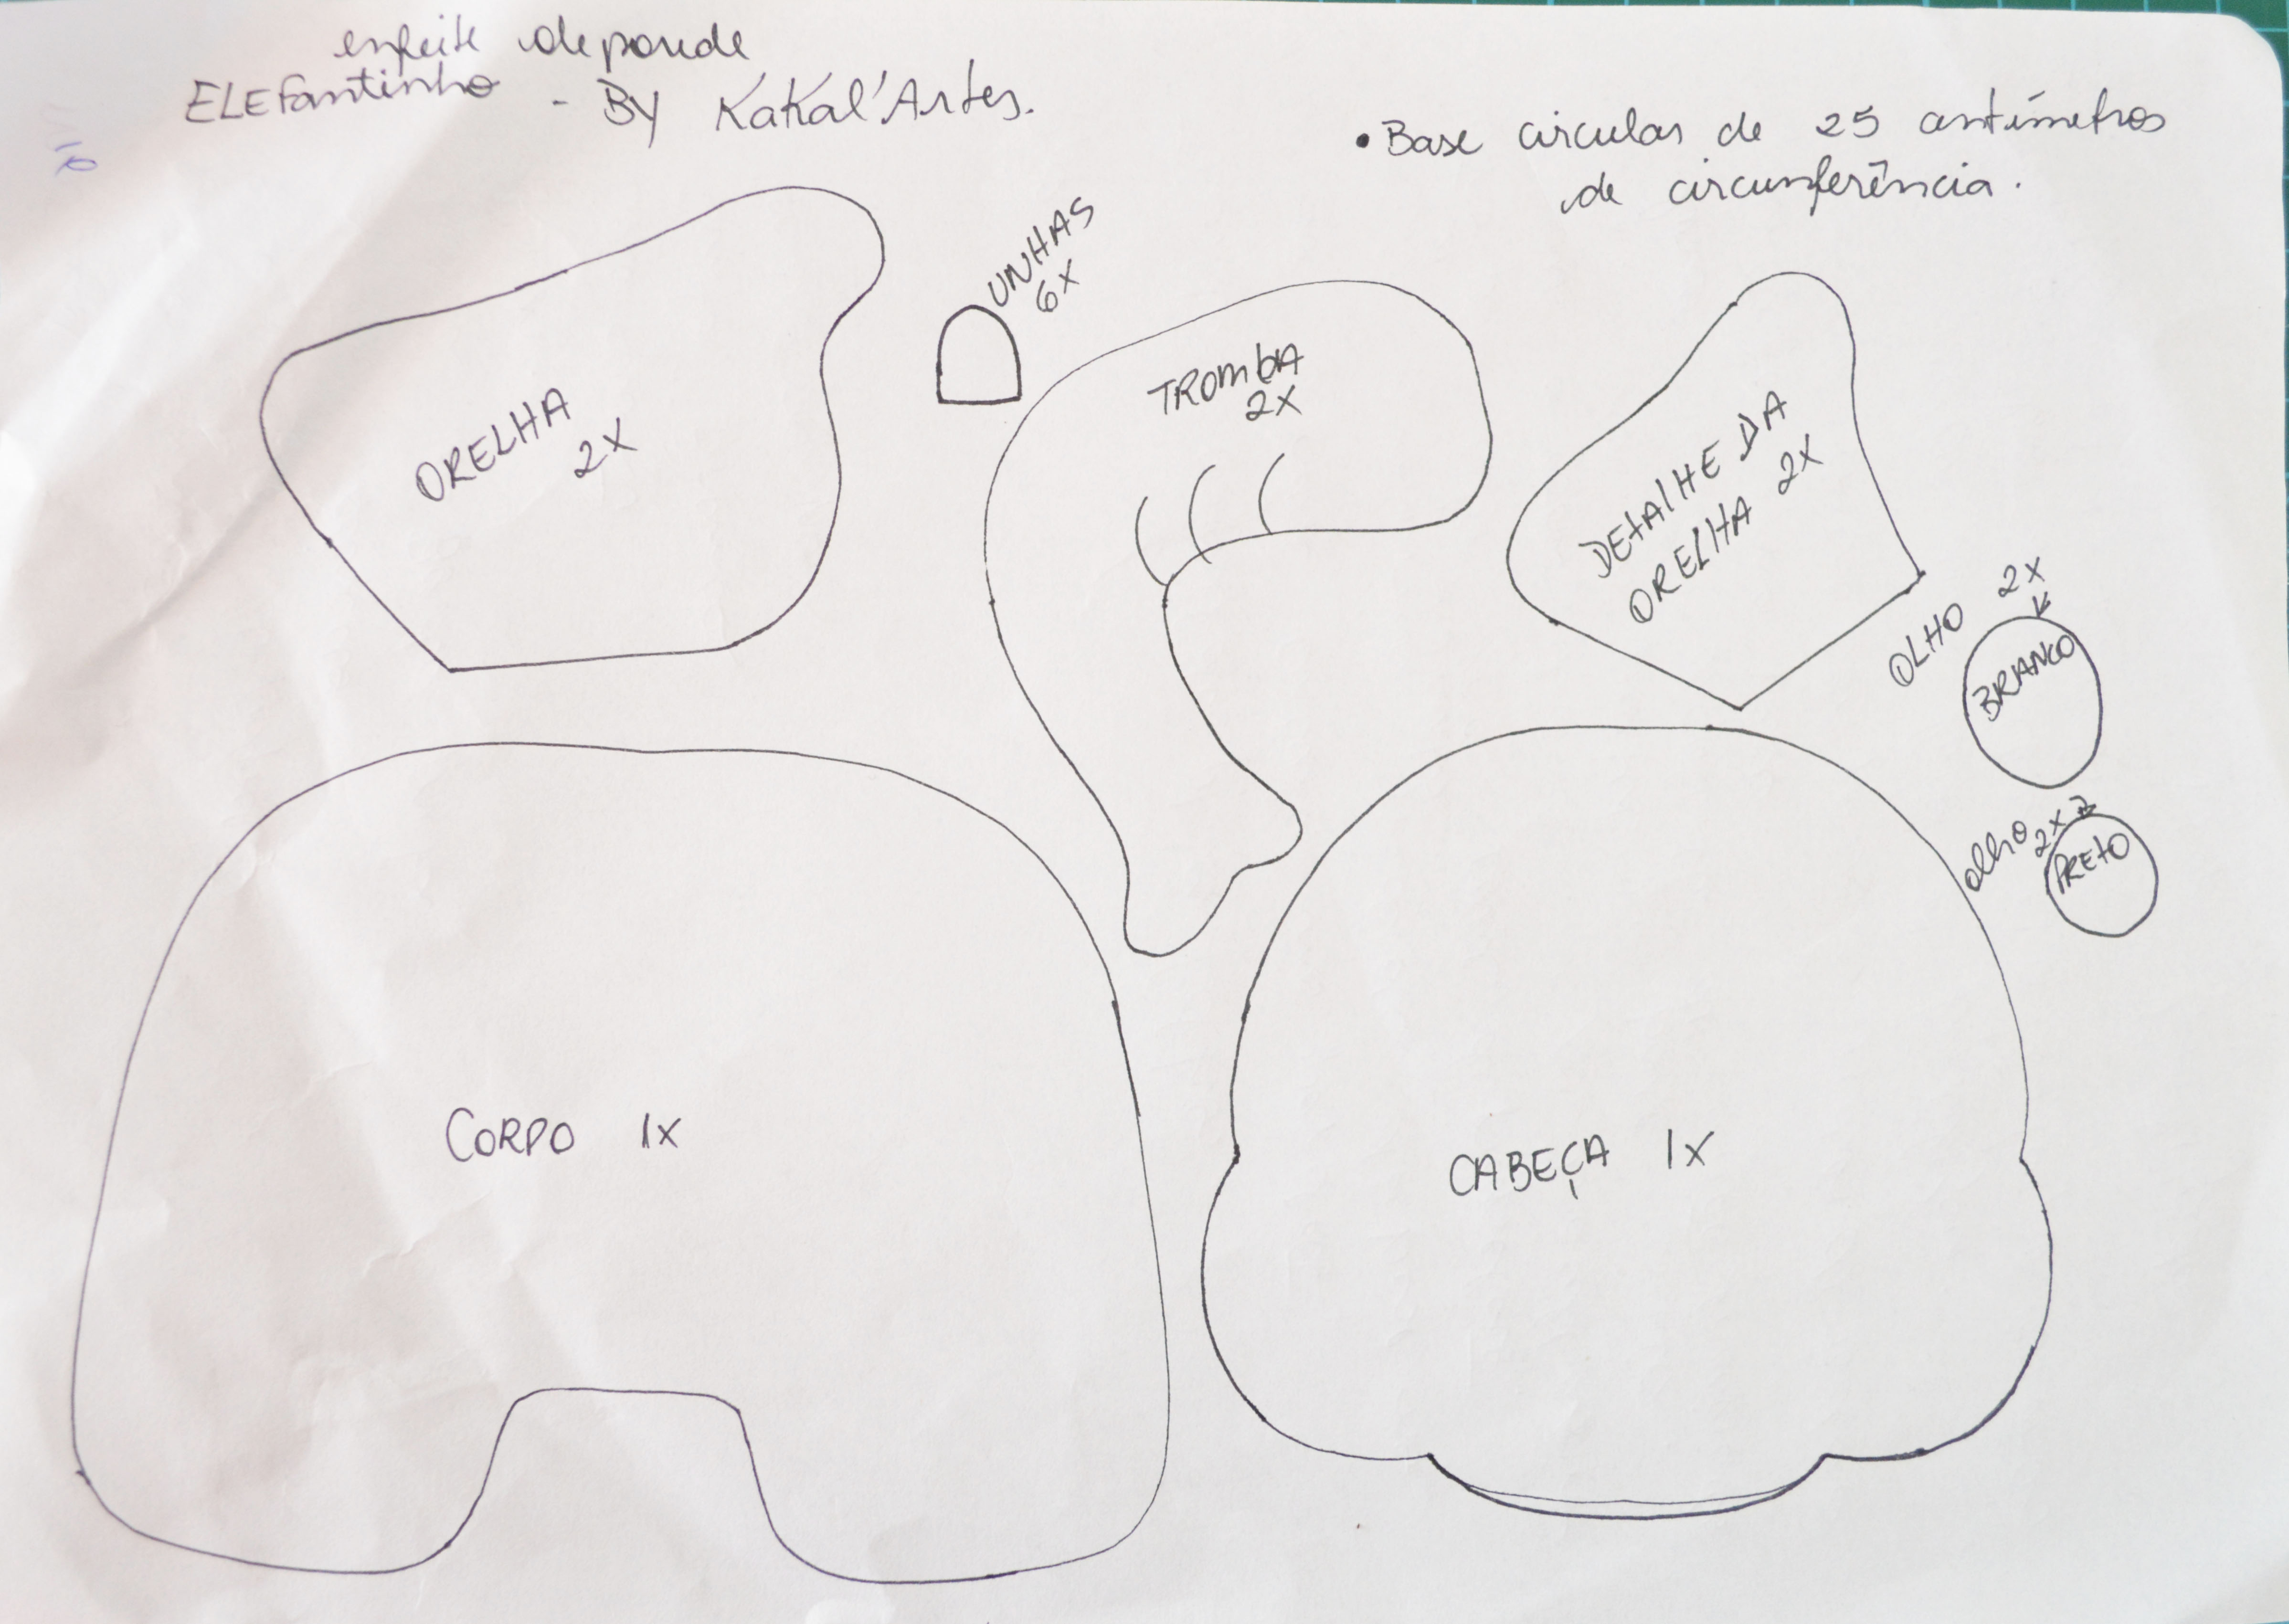 enfeite de parede
ELEFantinho - By KaKal'Artes.
• Base circular de 25 centímetros
de circunferência.
UNHAS
6X
ORELHA
2X
TROMbA
2X
DEtAlHE DA
ORElHA 2X
OLHO 2X
BRANCO
olho 2X
PREtO
CORPO 1X
CABEÇA 1X